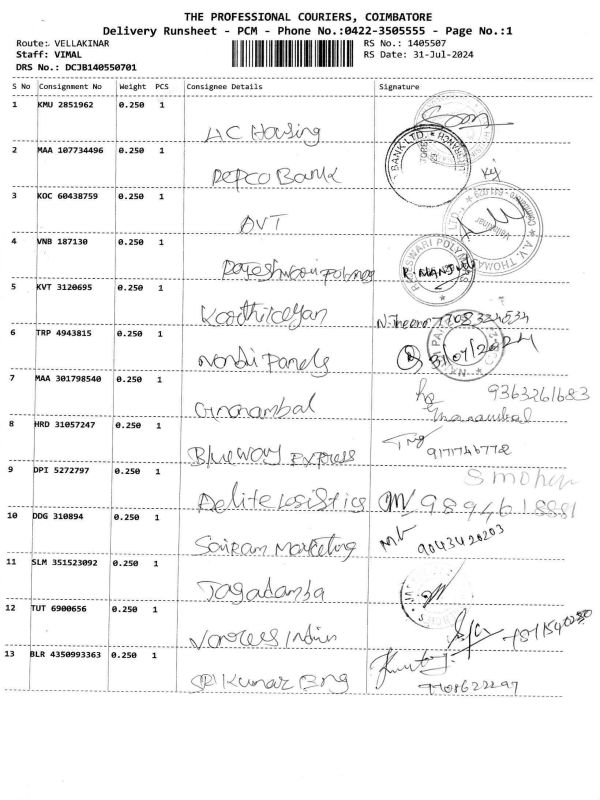 THE PROFESSIONAL COURIERS, COIMBATORE
Delivery Runsheet - PCM - Phone No.:0422-3505555 - Page No.:1
Route: VELLAKINAR
RS No.: 1405507
Staff: VIMAL
RS Date: 31-Jul-2024
DRS No.: DCJB140550701
S No Consignment No Weight PCS Consignee Details Signature
1 KMU 2851962 0.250 1
AC Housing
2 MAA 107734496 0.250 1
Repco Bank
3 KOC 60438759 0.250 1
AVT
4 VNB 187130 0.250 1
5 KVT 3120695 0.250 1
Karthikeyan
6 TRP 4943815 0.250 1
31/07/2024
Nandi Panels
7 MAA 301798540 0.250 1
9363261683
Gnanambal
8 HRD 31057247 0.250 1
Blueway Express
9 DPI 5272797 0.250 1
S mohan
Delite Logistics 9894618881
10 DDG 310894 0.250 1
Sairam Marketing 9043420203
11 SLM 351523092 0.250 1
Jagadamba
12 TUT 6900656 0.250 1
13 BLR 4350993363 0.250 1
Sri Kumar Eng